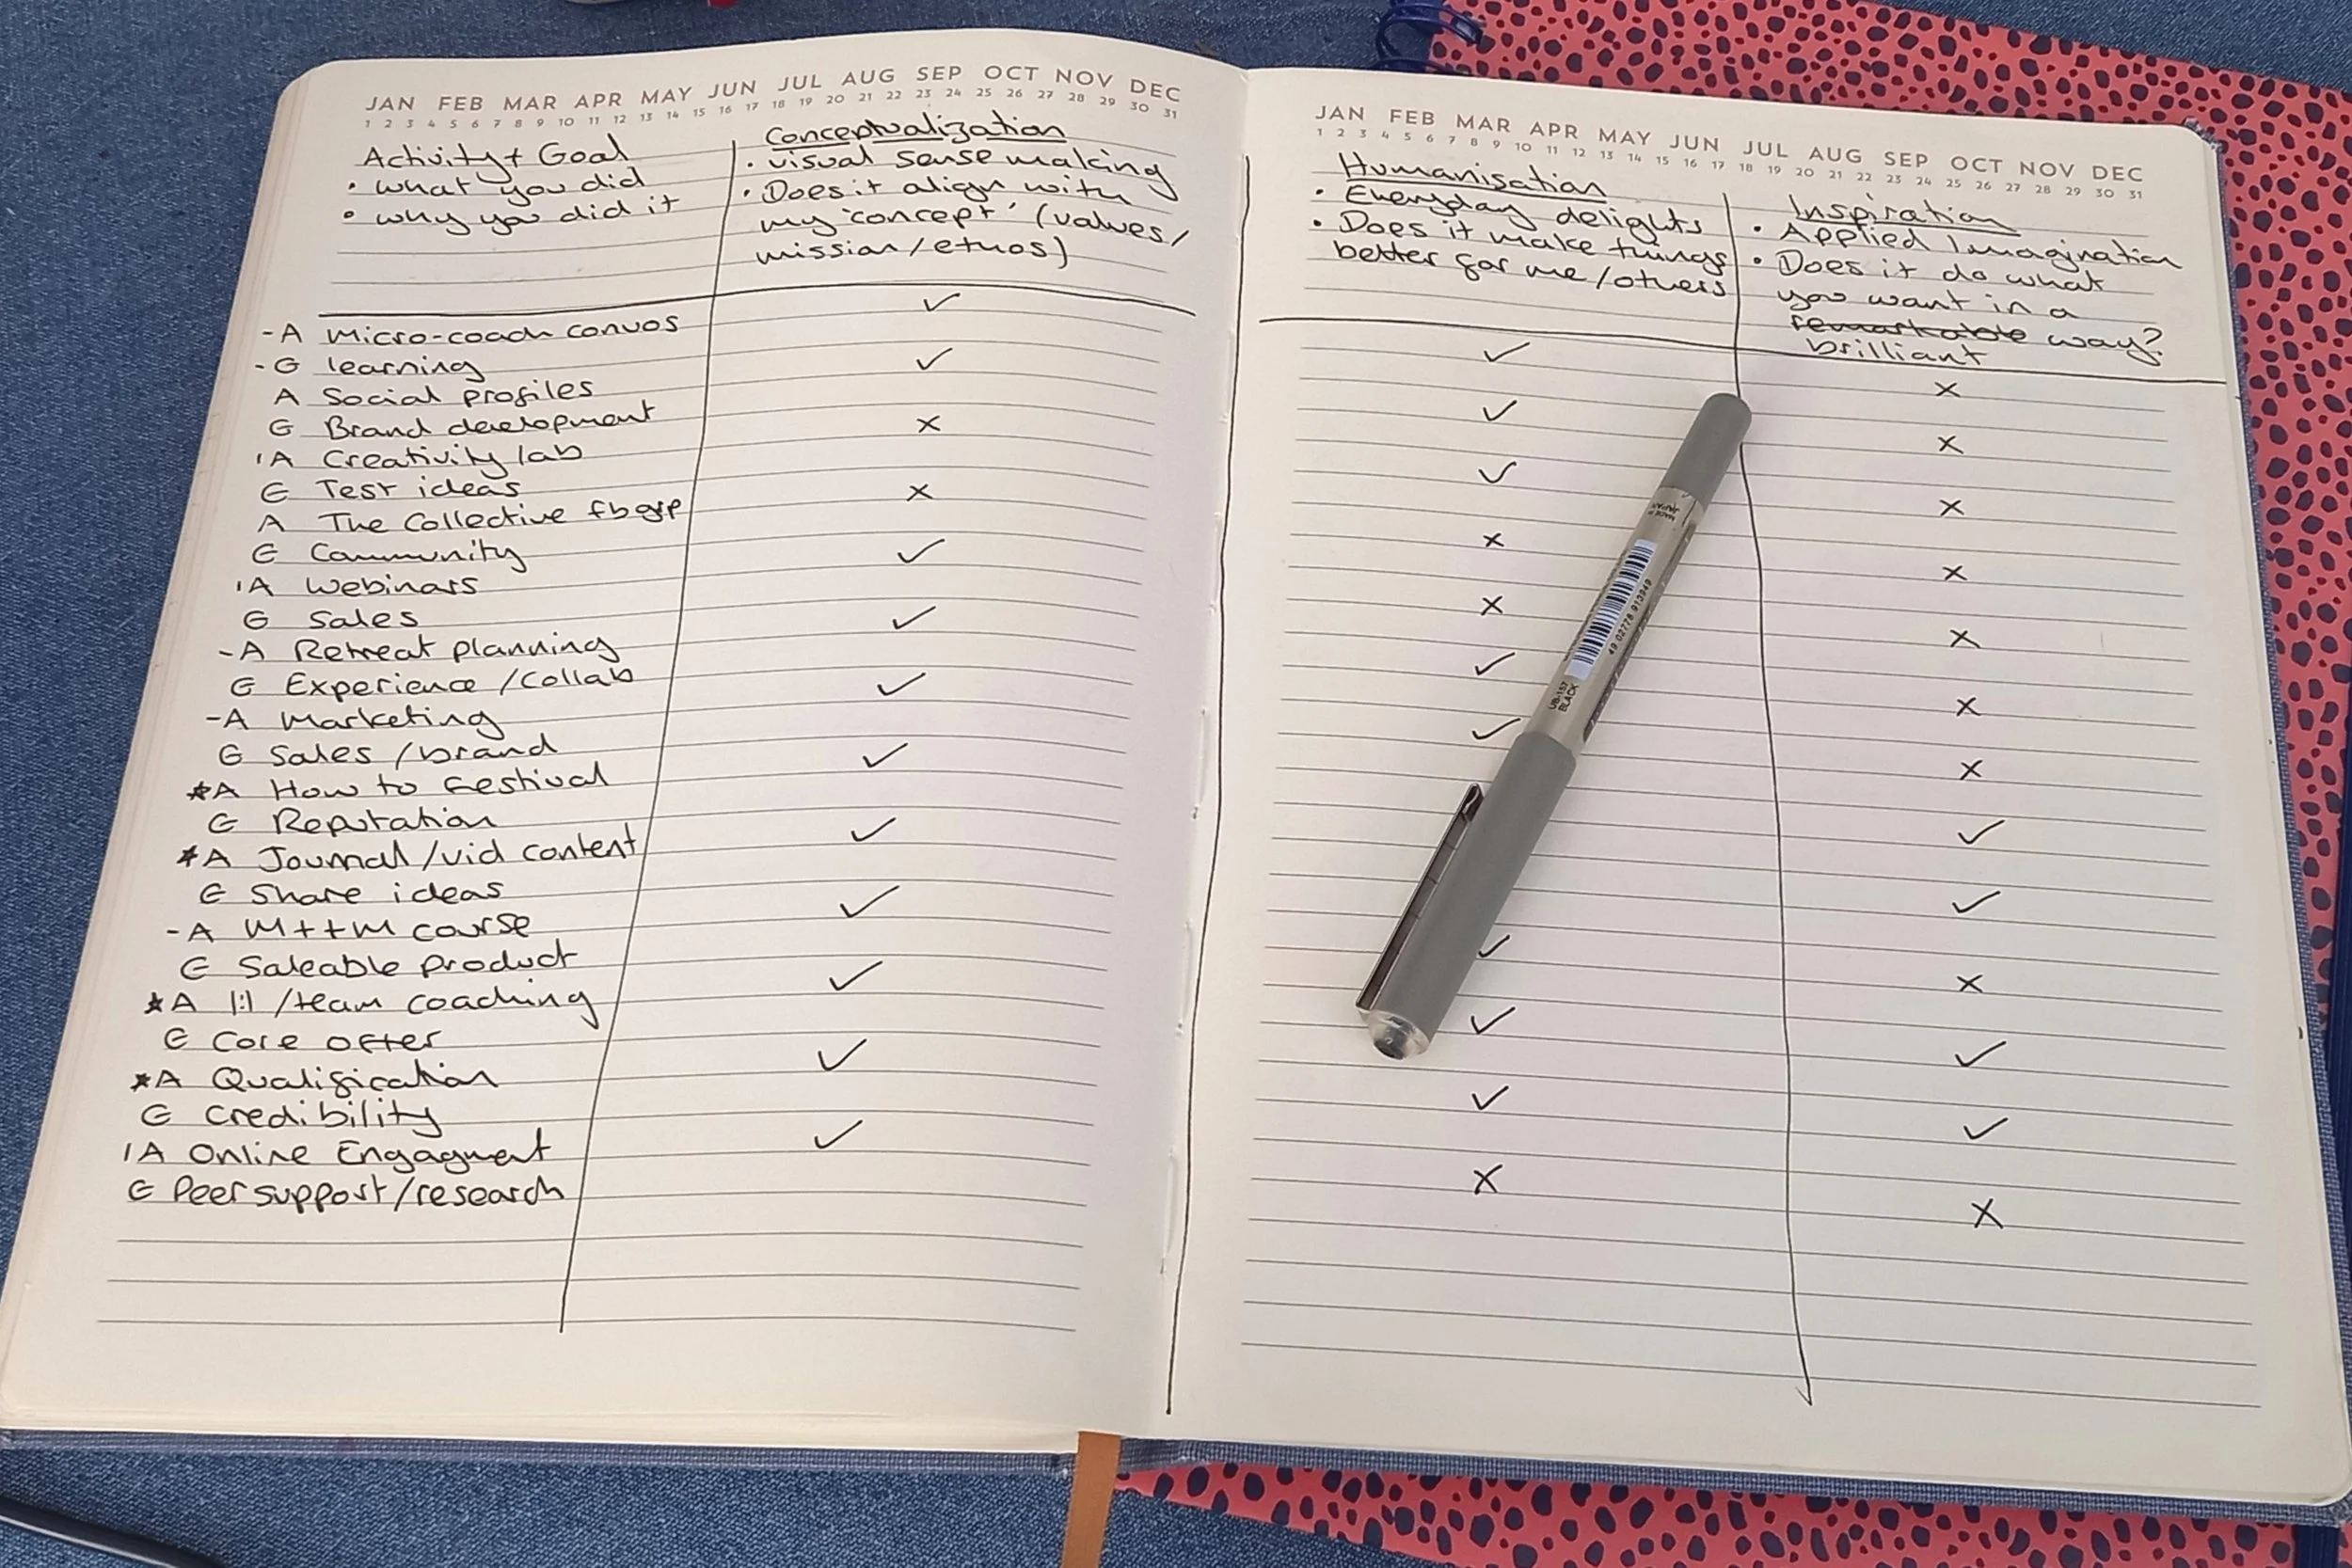 JAN FEB MAR APR MAY JUN JUL AUG SEP OCT NOV DEC
1 2 3 4 5 6 7 8 9 10 11 12 13 14 15 16 17 18 19 20 21 22 23 24 25 26 27 28 29 30 31
Activity + Goal
• what you did
• why you did it
Conceptualization
• visual sense making
• Does it align with
my 'concept' (values/
mission/ethos)
- A Micro-coach convos ✓
- G learning
A Social profiles ✓
G Brand development
'A Creativity lab ×
G Test ideas
A The Collective fb grp ×
G Community
'A Webinars ✓
G Sales
- A Retreat planning ✓
G Experience /Collab
- A Marketing ✓
G Sales /brand
★A How to Festival ✓
G Reputation
★A Journal /vid content ✓
G Share ideas
- A M++M course ✓
G Saleable product
★A 1:1 /team coaching ✓
G Core offer
★A Qualification ✓
G Credibility
'A Online Engagment ✓
G Peer support/research
JAN FEB MAR APR MAY JUN JUL AUG SEP OCT NOV DEC
1 2 3 4 5 6 7 8 9 10 11 12 13 14 15 16 17 18 19 20 21 22 23 24 25 26 27 28 29 30 31
Humanisation
• Everyday delights
• Does it make things
better for me/others
Inspiration
• Applied Imagination
• Does it do what
you want in a
remarkable way?
brilliant
✓ ×
✓ ×
✓ ×
× ×
× ×
✓ ×
✓ ×
✓
✓
✓ ×
✓ ✓
✓ ✓
× ×
MADE IN
JAPAN
49 02778 913949
UB-157
BLACK